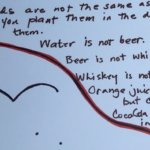 ds are not the same as
you plant them in the d
them.
Water is not beer.
Beer is not whi
Whiskey is not
Orange juic
but c
CocaCola
in